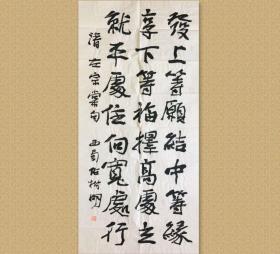 發上等願結中等緣
享下等福擇高處立
就平處住向寬處行
清左宗棠句 西蜀